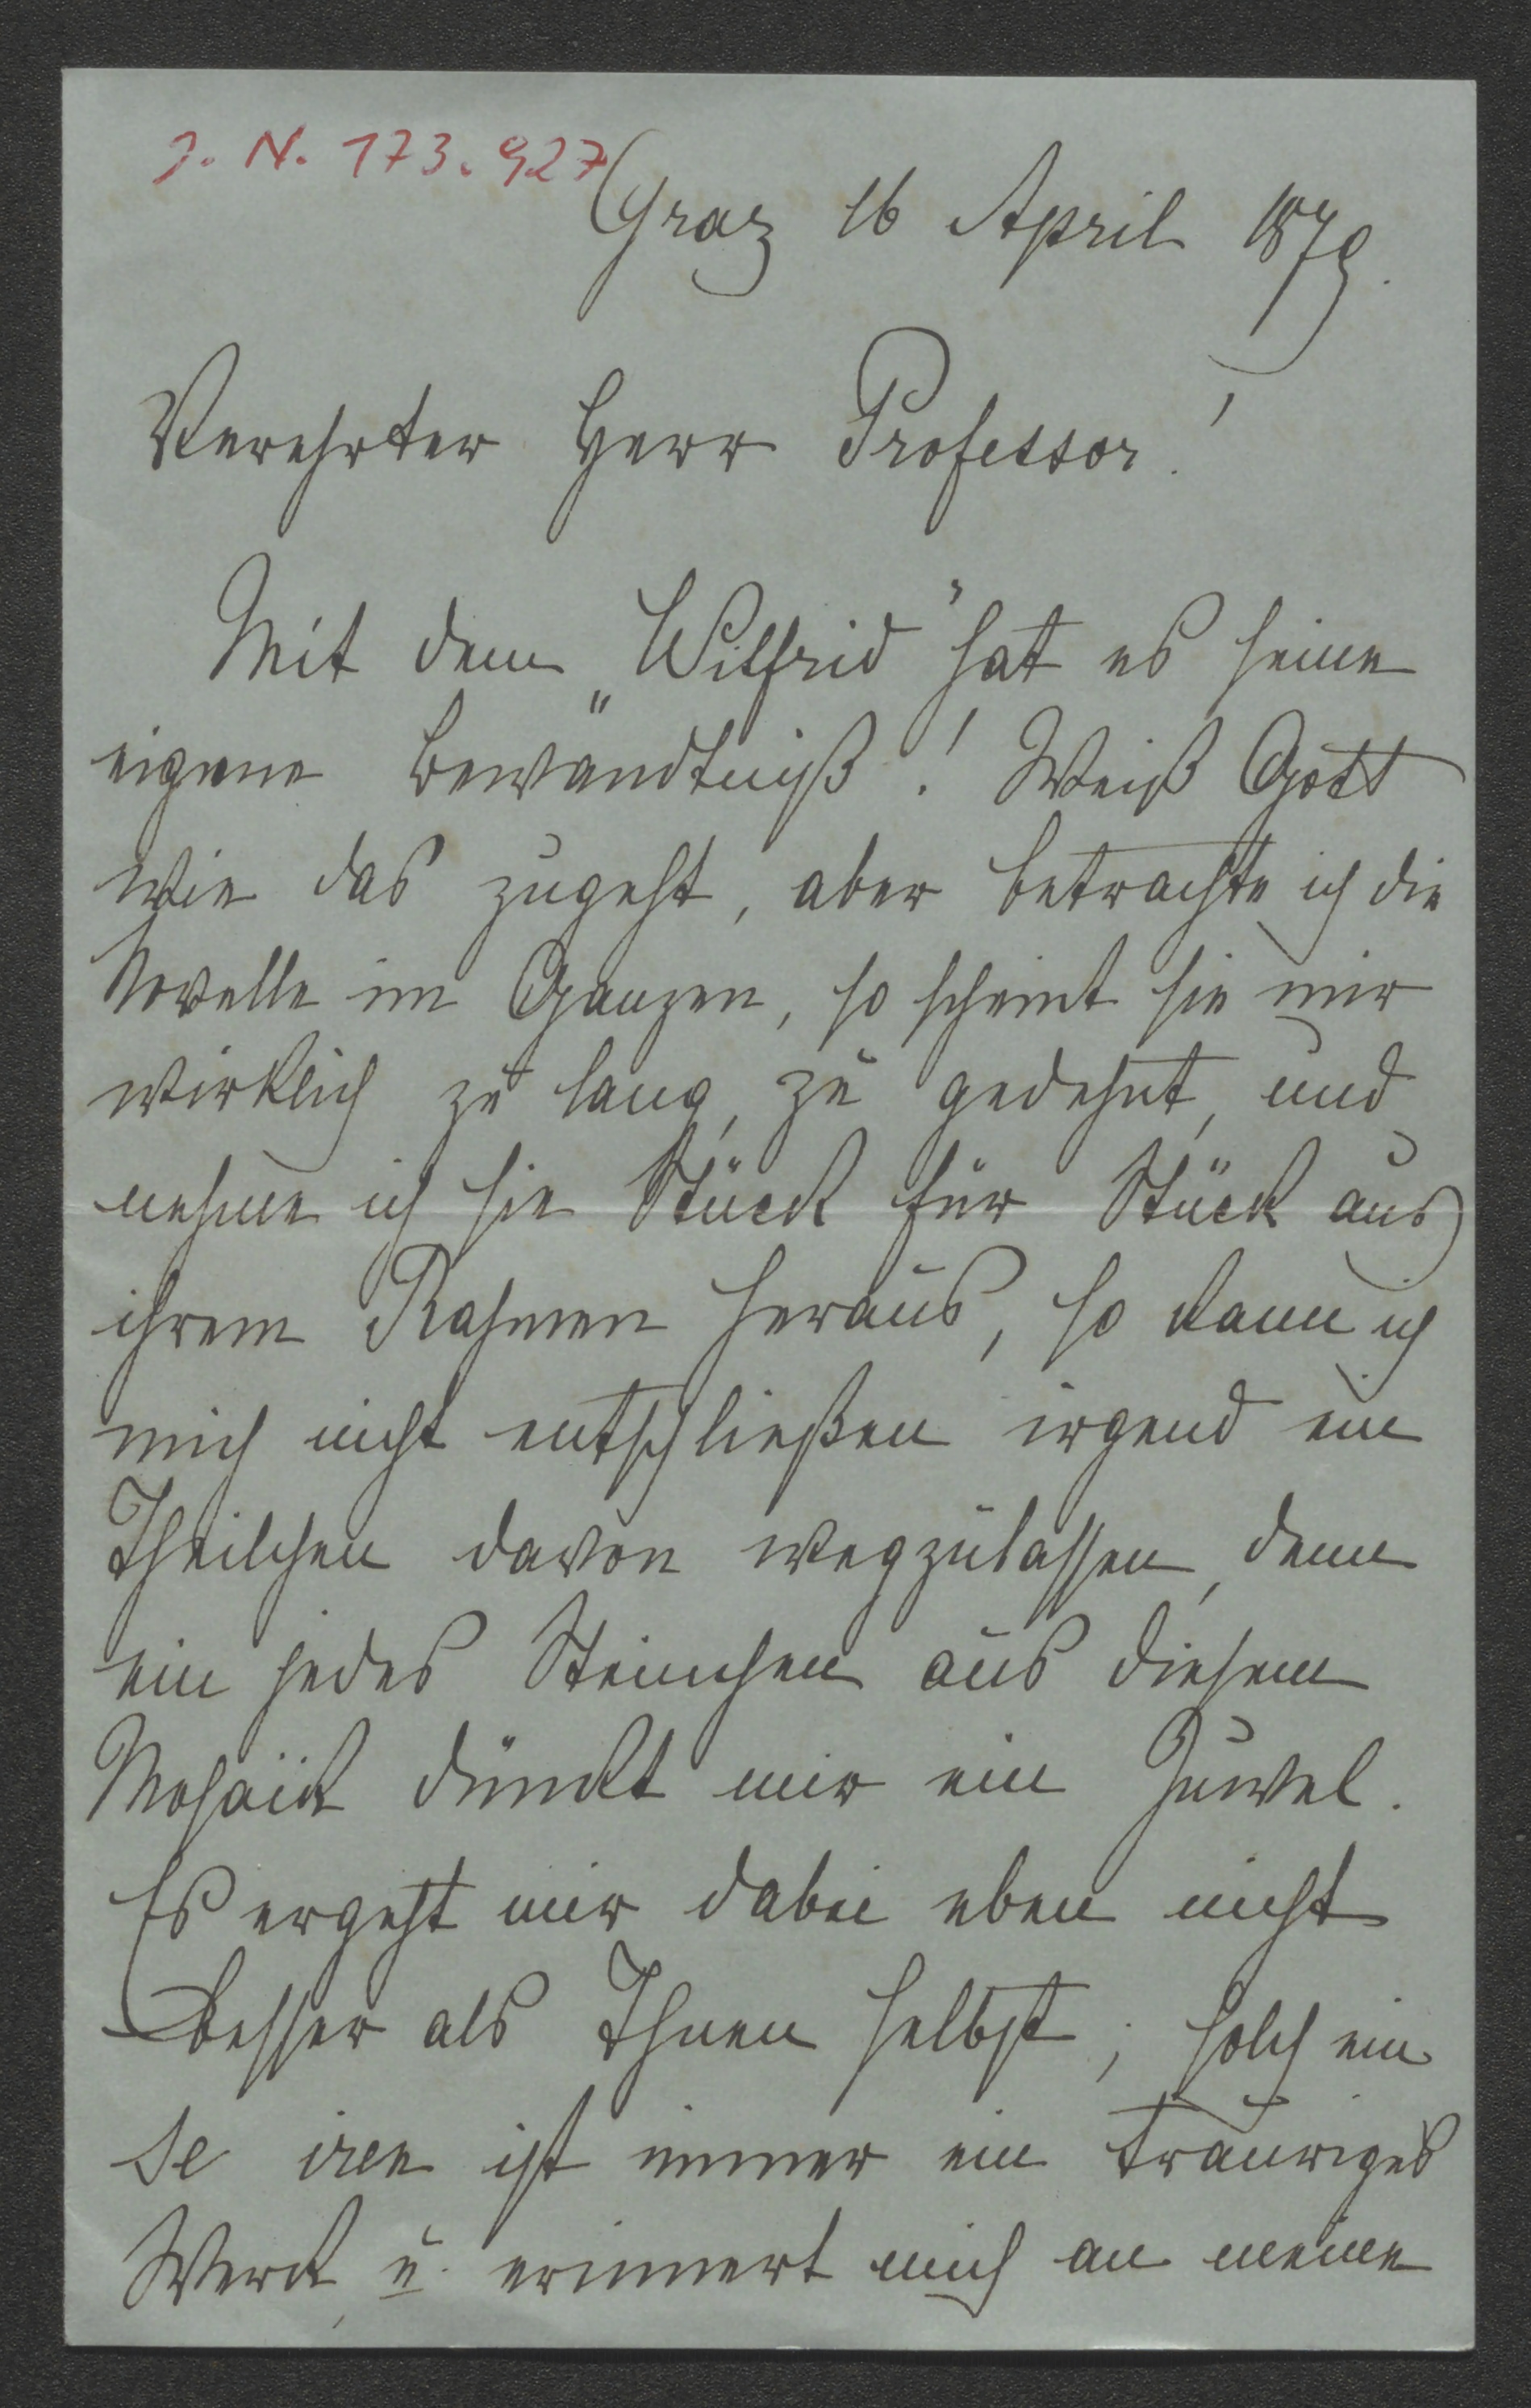 J. N. 173.927
Graz 16 April 1879.
Verehrter Herr Professor!
Mit dem „Wilfrid" hat es seine
eigene Bewandtniß! Weiß Gott
wie das zugeht, aber betrachte ich die
Novelle im Ganzen, so scheint sie mir
wirklich zu lang, zu gedehnt, und
nehme ich sie Stück für Stück aus
ihrem Rahmen heraus, so kann ich
mich nicht entschließen irgend ein
Theilchen davon wegzulassen, denn
ein jedes Steinchen aus diesem
Mosaik dünkt mir ein Juwel.
Es ergeht mir dabei eben nicht
besser als Ihnen selbst; solch ein
ist immer ein trauriges
Werk, u. erinnert mich an meine